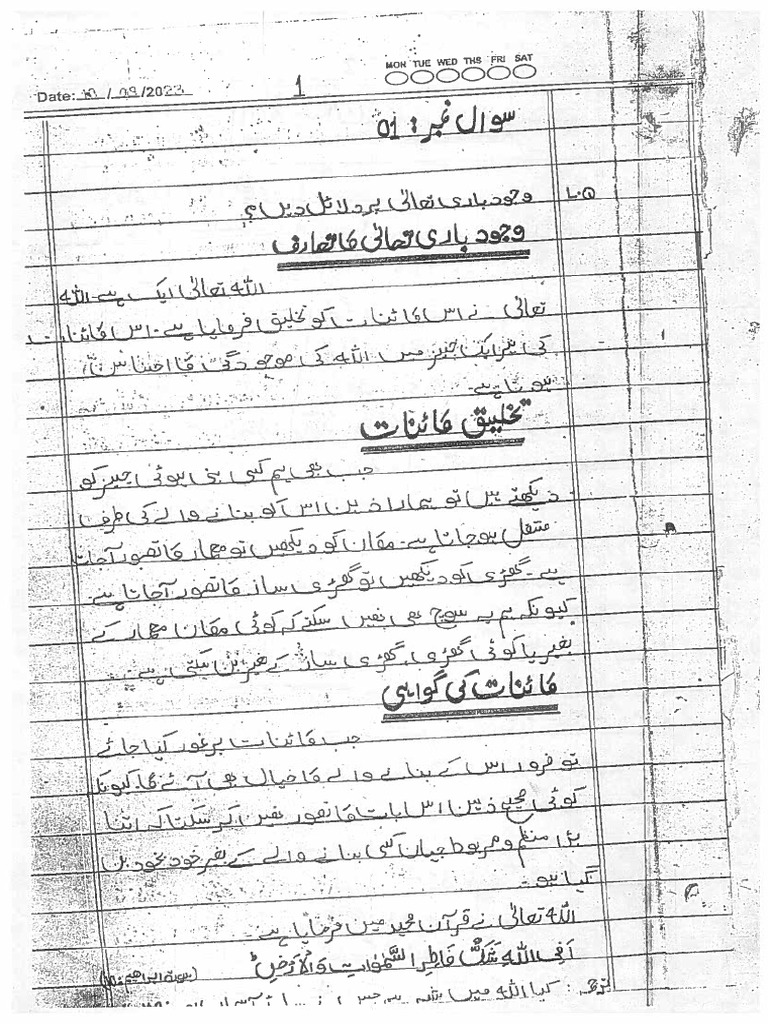 MON TUE WED THS FRI SAT
Date: 10/08/2023
1
سوال نمبر: 01
وجود باری تعالیٰ پر دلائل دیں؟
وجود باری تعالیٰ کا تعارف
اللہ تعالیٰ ایک ہے۔ اللہ
تعالیٰ نے اس کائنات کو تخلیق فرمایا ہے۔ اس کائنات
کی ہر ایک چیز میں اللہ کی موجودگی کا احساس
ہوتا ہے۔
تخلیق کائنات
جب بھی ہم کسی بنی ہوئی چیز کو
دیکھتے ہیں تو ہمارا ذہن اس کو بنانے والے کی طرف
منتقل ہو جاتا ہے۔ مکان کو دیکھیں تو معمار کا تصور آجاتا
ہے۔ گھڑی کو دیکھیں تو گھڑی ساز کا تصور آجاتا ہے۔
کیونکہ ہم یہ سوچ بھی نہیں سکتے کہ کوئی مکان معمار کے
بغیر یا کوئی گھڑی، گھڑی ساز کے بغیر بن سکتی ہے۔
کائنات کی گواہی
جب کائنات پر غور کیا جائے
تو ضرور اس کے بنانے والے کا خیال بھی آئے گا۔ کیونکہ
کوئی صحیح ذہن اس بات کا تصور نہیں کر سکتا کہ اتنا
بڑا منظم و مربوط جہاں کسی بنانے والے کے بغیر خود بخود بن
گیا ہو۔
اللہ تعالیٰ نے قرآن مجید میں فرمایا ہے۔
اَفِی اللّٰهِ شَكٌّ فَاطِرِ السَّمٰوٰتِ وَالْاَرْضِ ط (سورۃ ابراہیم: 10)
ترجمہ: کیا اللہ میں شک ہے جس نے